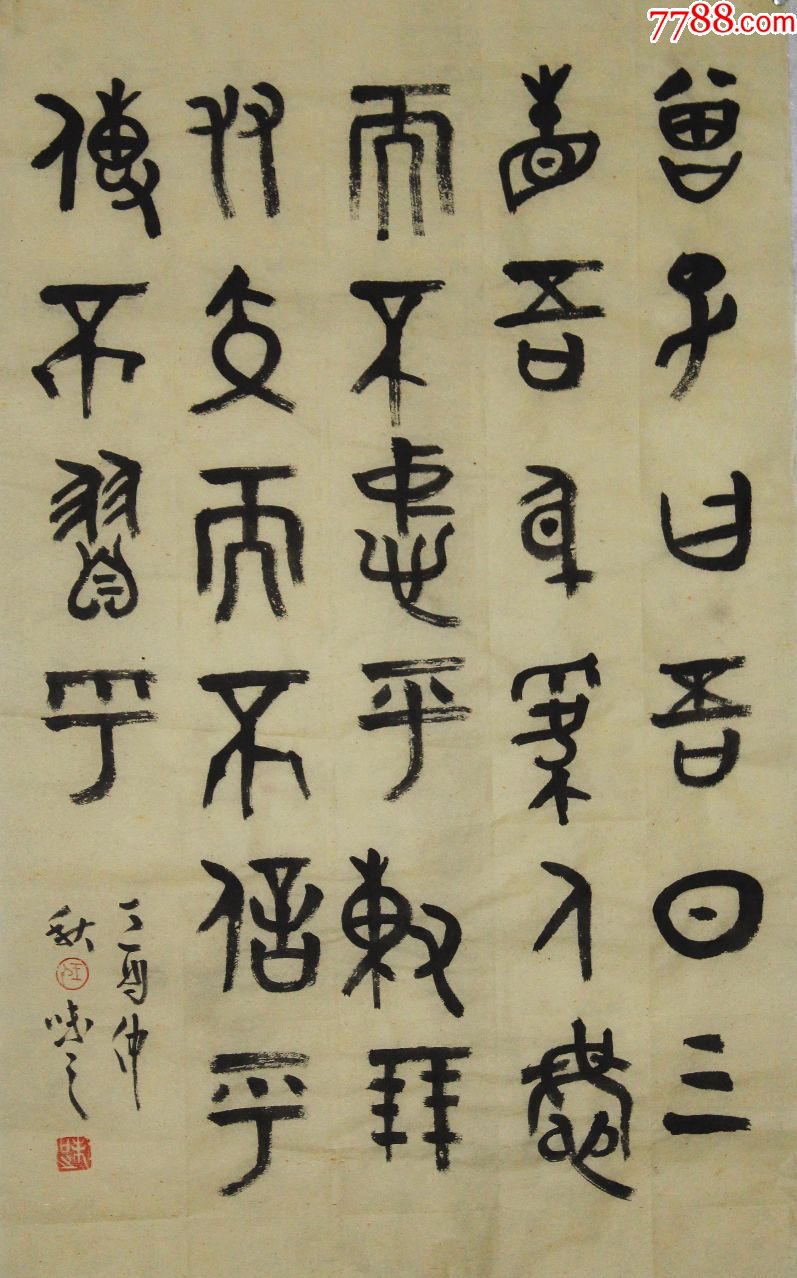 7788.com
曾子曰吾日三
省吾身為人謀
而不忠乎與朋
友交而不信乎
傳不習乎
丁酉仲
秋